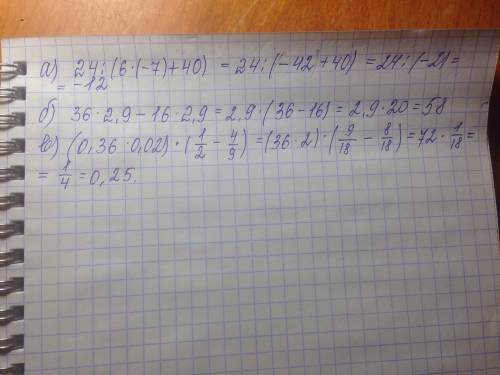 а) 24:(6·(-7)+40) = 24:(-42+40) = 24:(-2)=
= -12
б) 36·2,9-16·2,9=2,9·(36-16)=2,9·20=58
в) (0,36·0,02)·(1/2-4/9)=(36·2)·(9/18-8/18)=72·1/18=
=1/4=0,25.